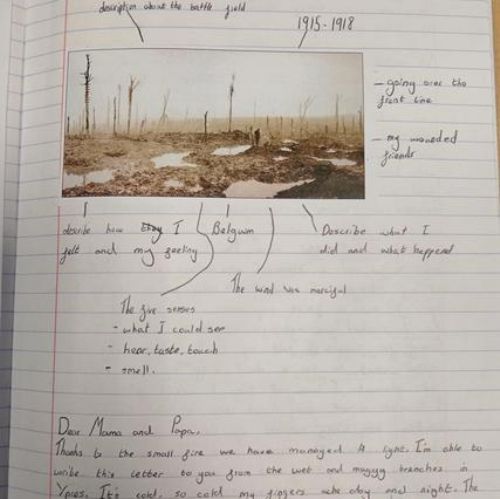 description about the battle field
1915-1918
- going over the
front line
- my wounded
friends
describe how they I
felt and my feeling
Belgum
Describe what I
did and what happend
The wind was merciful
The five senses
- what I could see
- hear, taste, touch
- smell.
Dear Mama and Papa,
Thanks to the small fire we have managed to light I'm able to
write this letter to you from the wet and muggy trenches in
Ypres. It's cold, so cold my fingers ache day and night. The